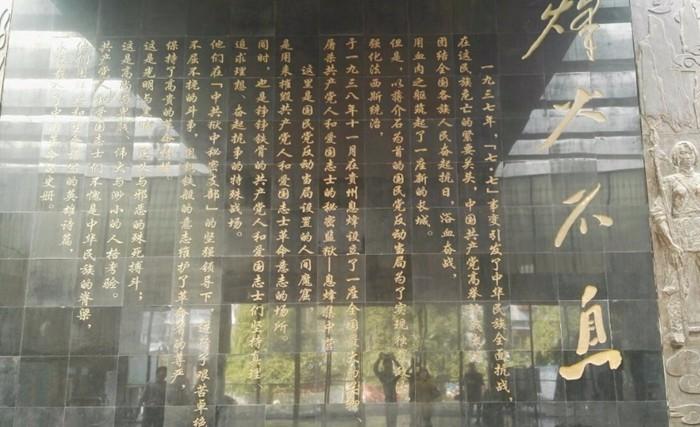 烽火不息
一九三七年，“七·七”事变引发了中华民族全面抗战，
在这民族危亡的紧要关头，中国共产党高举
团结全国各族人民奋起抗日，浴血奋战，
用血肉之躯筑起了一座新的长城。
但是，以蒋介石为首的国民党反动当局为了实现独裁
强化法西斯统治，
于一九三八年十一月在贵州息烽设立了一座全国最大的
屠杀共产党人和爱国志士的秘密监狱—息烽集中营
这里是国民党反动当局设置的人间魔窟
是用来摧残共产党人和爱国志士革命意志的场所。
同时，也是铮铮铁骨的共产党人和爱国志士们坚持真理、
追求理想、奋起抗争的特殊战场。
他们在「中共狱中秘密支部」的坚强领导下，进行了艰苦卓绝
不屈不挠的斗争，用钢铁般的意志维护了革命者的尊严，
保持了高贵的
这是光明与 与邪恶的殊死搏斗；
这是高尚与卑贱、伟大与渺小的人格考验。
共产党人和爱国志士们不愧是中华民族的脊梁，
他们 的英雄诗篇，
史册。